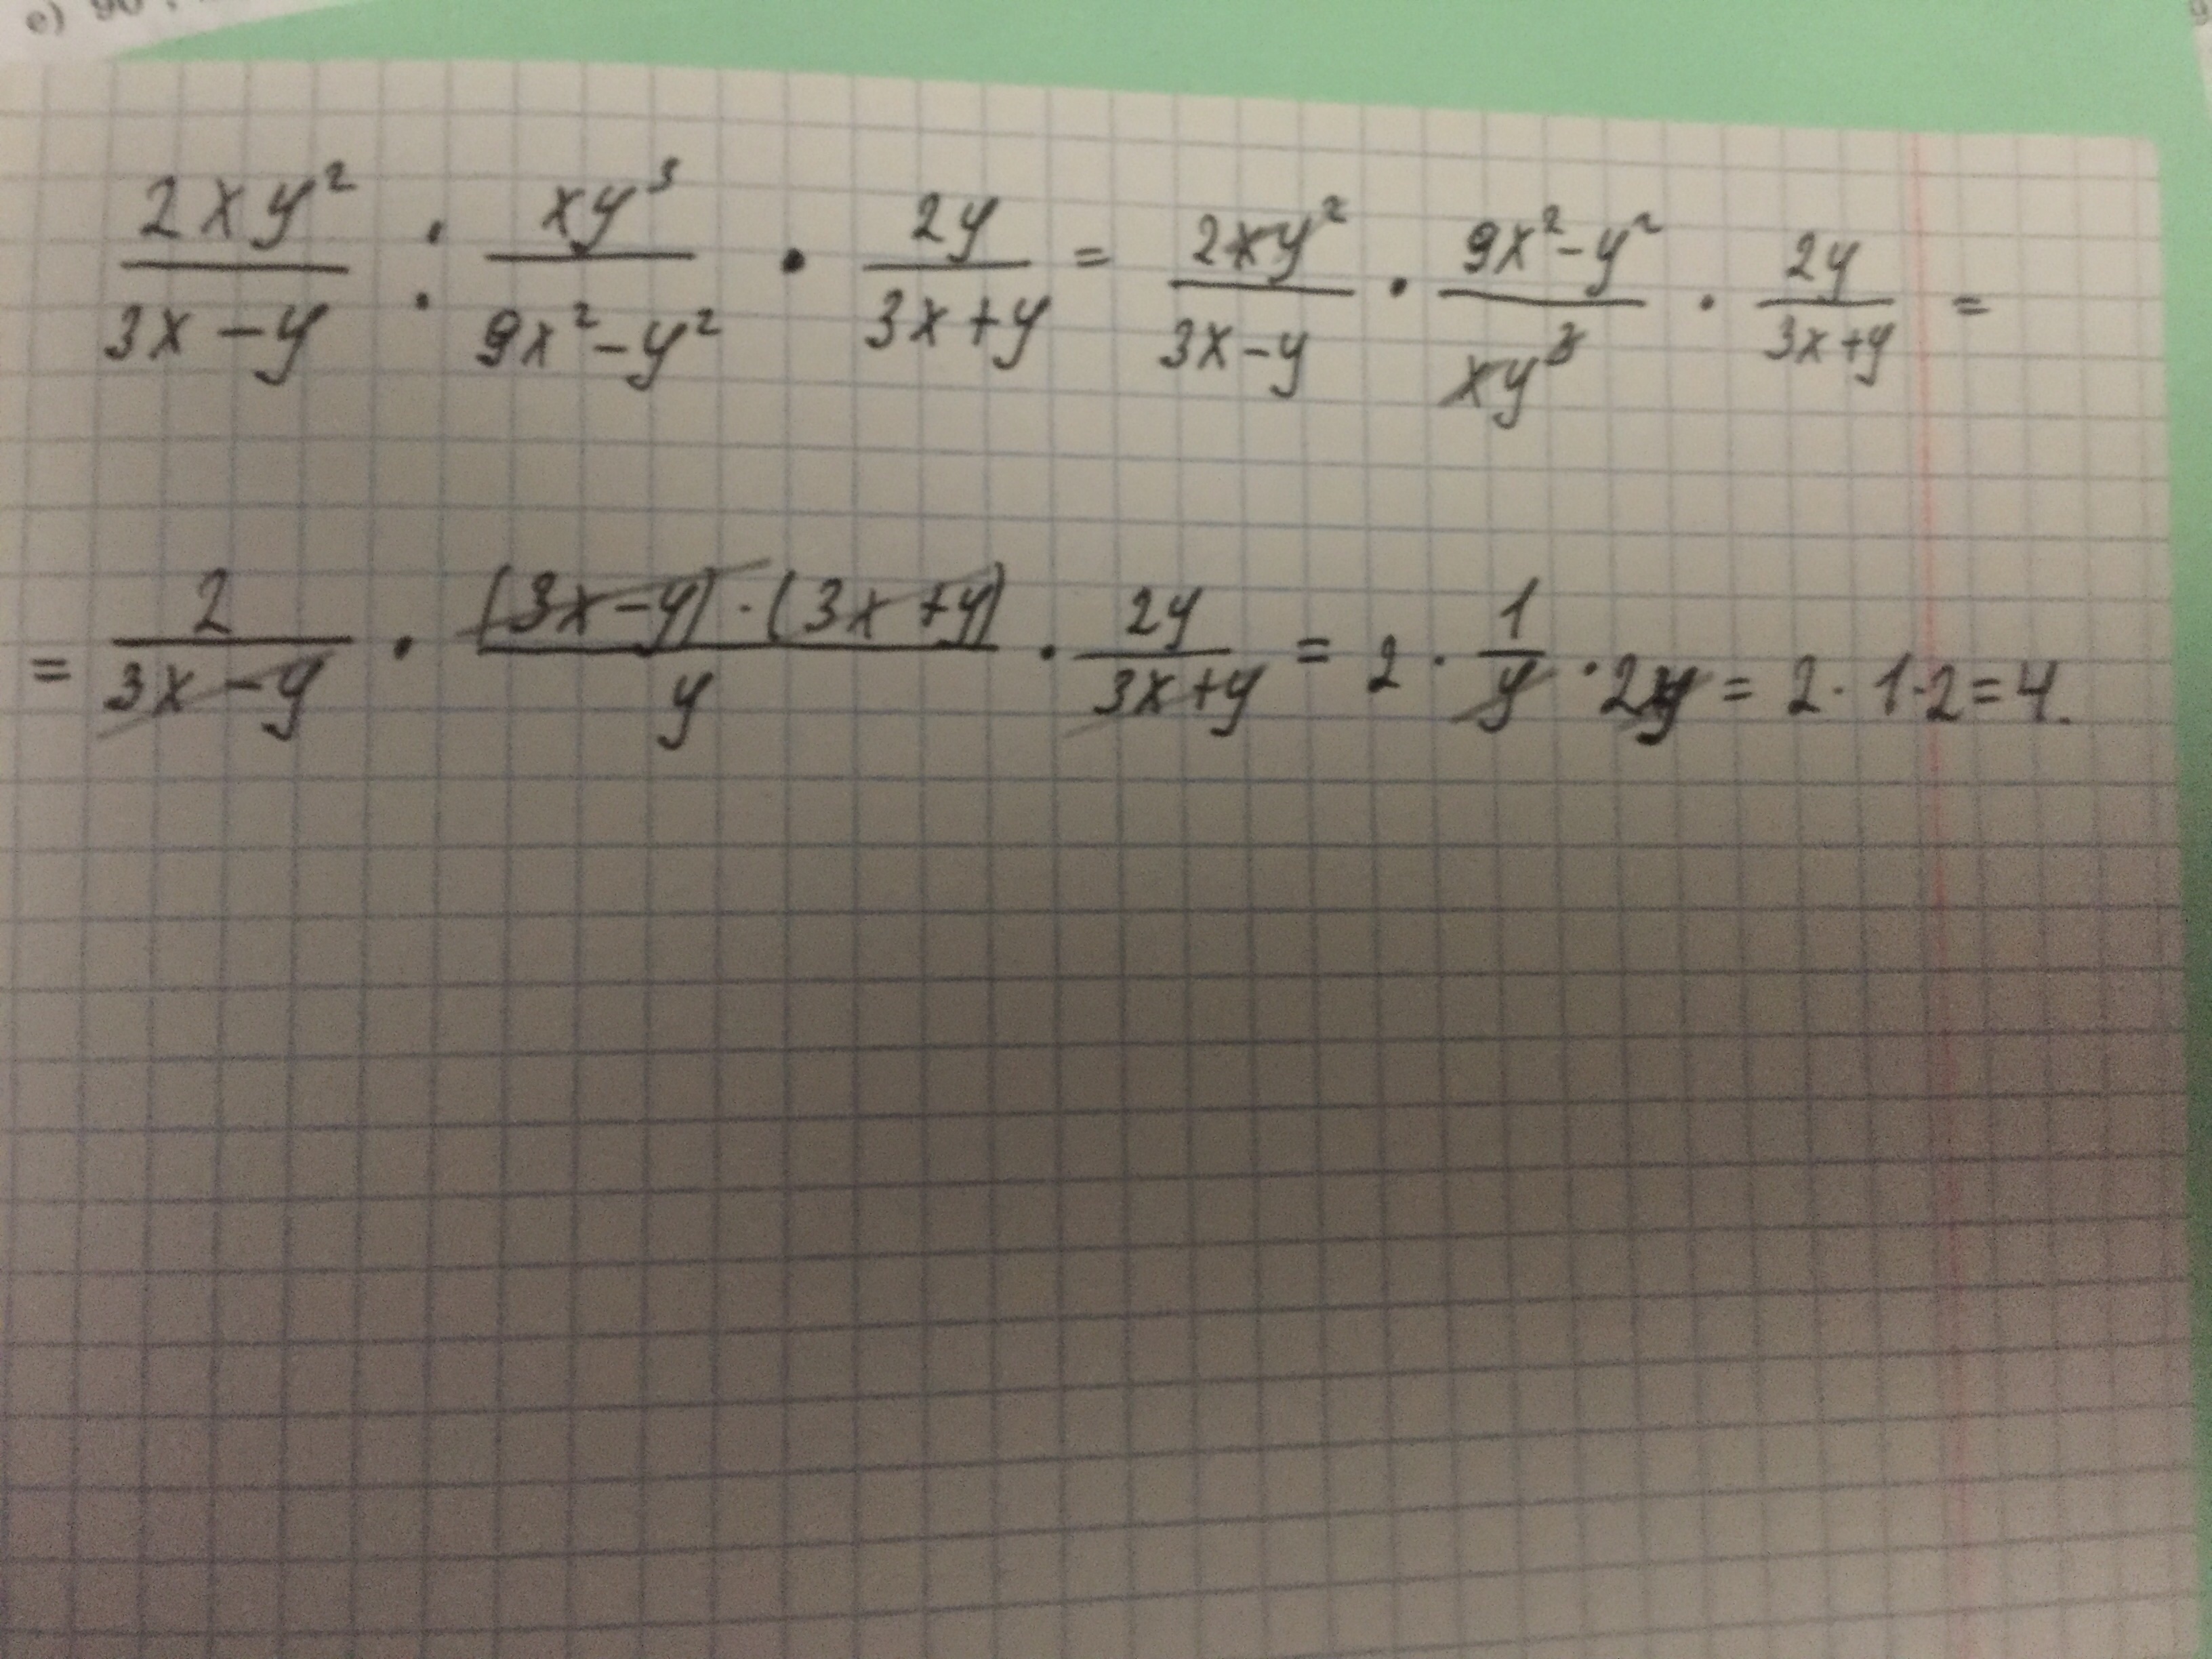 е) 90
2xy²/(3x-y) : xy³/(9x²-y²) · 2y/(3x+y) = 2xy²/(3x-y) · (9x²-y²)/xy³ · 2y/(3x+y) =
= 2/(3x-y) · (3x-y)·(3x+y)/y · 2y/(3x+y) = 2 · 1/y · 2y = 2·1·2=4.